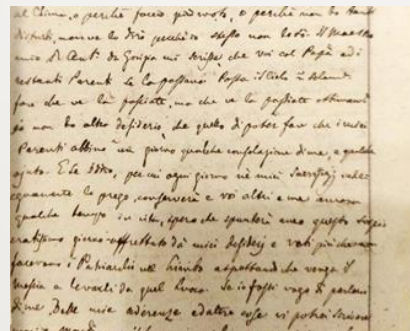 al Clima, o perchè faccio poco moto, o perchè non ho tanti
disturbi, non ve lo dirò perchè io stesso non lo sò. Il Maestro
mio Sr. Ant. da mi scrisse, che voi col Papà, ed i
restanti Parenti se la passano. Possa il Cielo
fare che ve la passiate, ma che ve la passiate
io non ho altro desiderio, che quello di poter fare che i miei
Parenti abbino un giorno qualche consolazione di me, e qualche
ajuto. E se Iddio, per cui ogni giorno nè miei Sacrificj
lo prego, conserverà e voi altri e me ancora
qualche tempo in vita, spero che spunterà anco questo
giorno affrettato dà miei desiderj e voti più che non
facevano i Patriarchi nel Limbo aspettando che venga il
Messia a levarli da quel luoco. Se io fossi vago di parlare
di me, Delle mie aderenze ed altre cose vi potrei scrivere